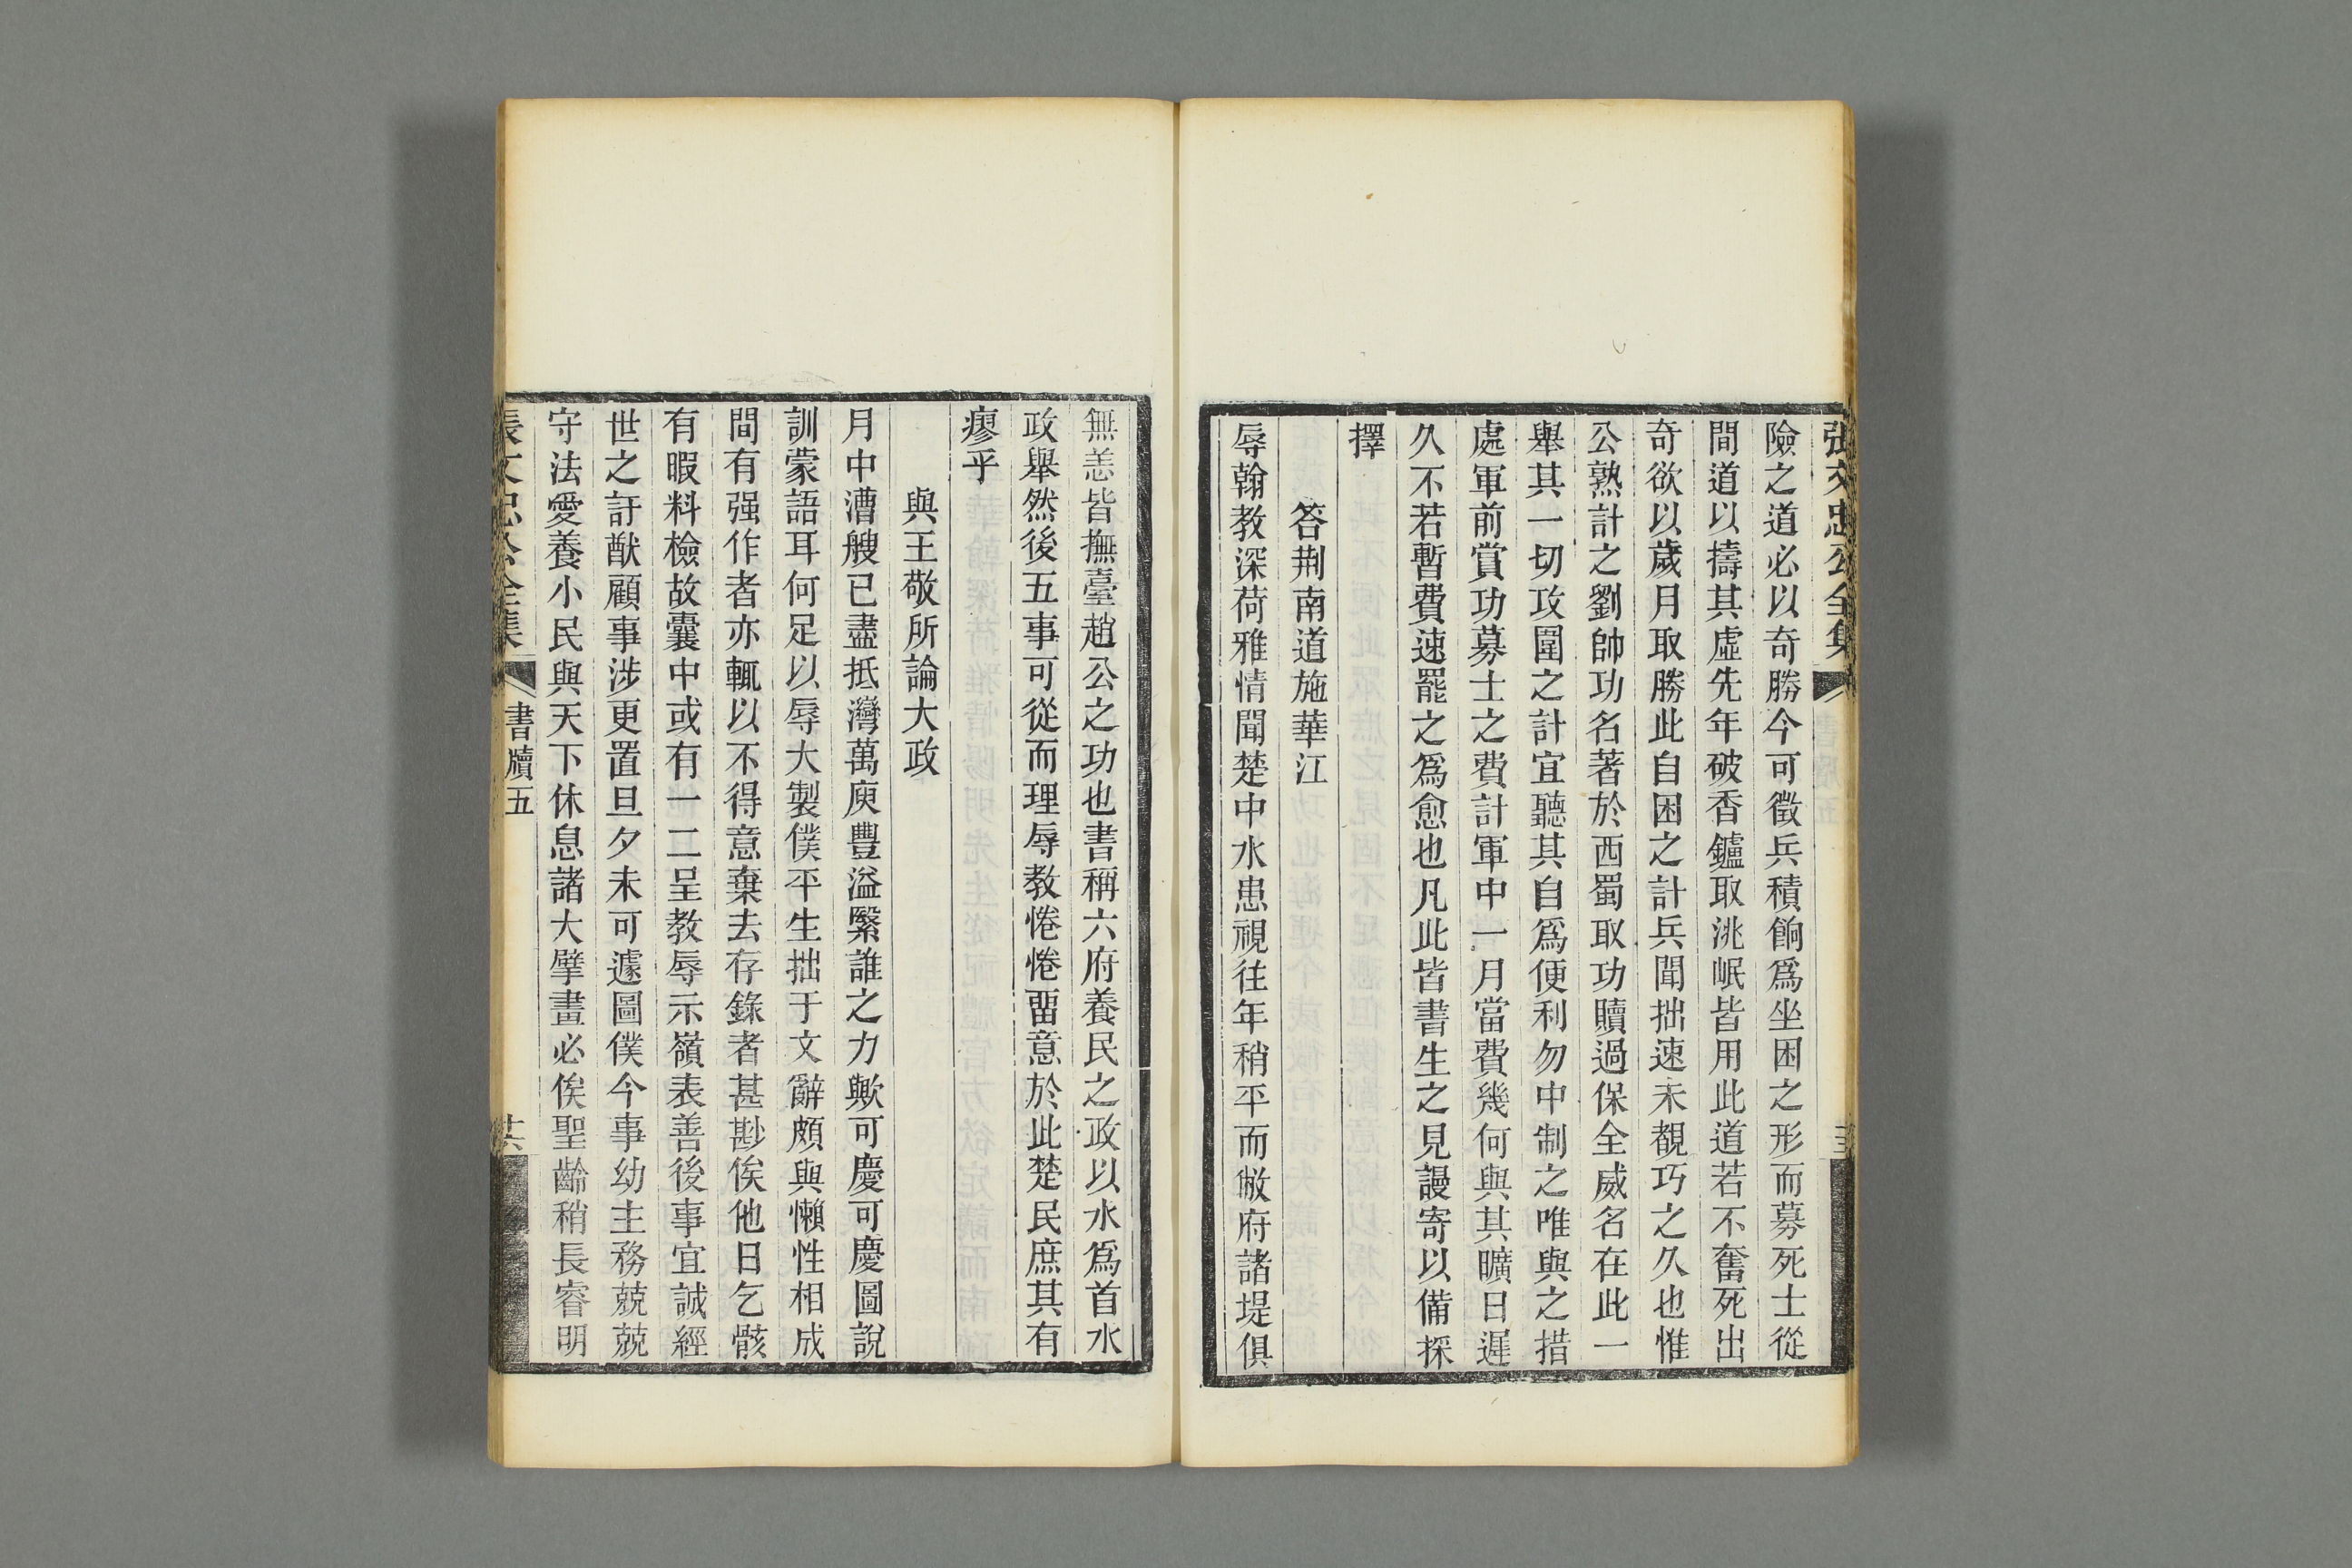 張文忠公全集
險之道必以奇勝今可徵兵積餉爲坐困之形而募死士從
間道以擣其虛先年破香鑪取洮岷皆用此道若不奮死出
奇欲以歲月取勝此自困之計兵聞拙速未覩巧之久也惟
公熟計之劉帥功名著於西蜀取功贖過保全威名在此一
舉其一切攻圍之計宜聽其自爲便利勿中制之唯與之措
處軍前賞功募士之費計軍中一月當費幾何與其曠日遲
久不若暫費速罷之爲愈也凡此皆書生之見謾寄以備採
擇
答荆南道施華江
辱翰教深荷雅情聞楚中水患視往年稍平而敝府諸堤俱
無恙皆撫臺趙公之功也書稱六府養民之政以水爲首水
政舉然後五事可從而理辱教惓惓畱意於此楚民庶其有
瘳乎
與王敬所論大政
月中漕艘已盡抵灣萬庾豐溢緊誰之力歟可慶可慶圖說
訓蒙語耳何足以辱大製僕平生拙于文辭頗與懶性相成
間有强作者亦輒以不得意棄去存錄者甚尠俟他日乞骸
有暇料檢故囊中或有一二呈教辱示嶺表善後事宜誠經
世之訏猷顧事涉更置旦夕未可遽圖僕今事幼主務兢兢
守法愛養小民與天下休息諸大擘畫必俟聖齡稍長睿明
張文忠公全集
書牘五
十六